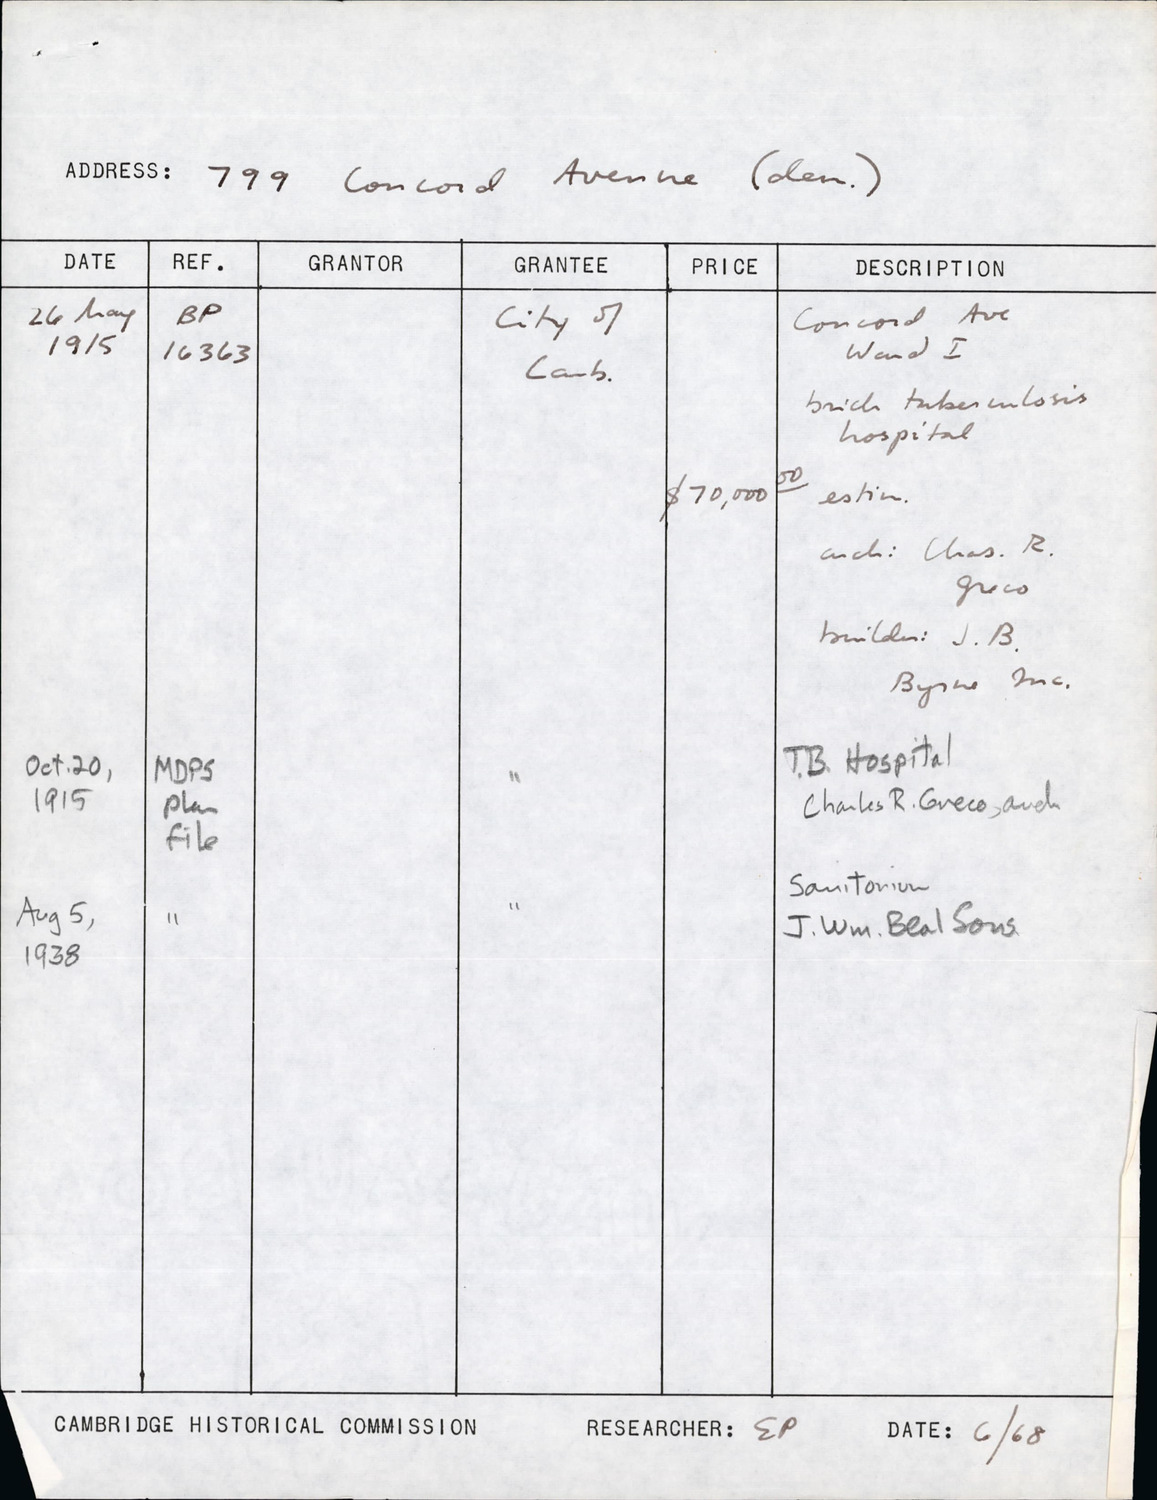 ADDRESS: 799 Concord Avenue (dem.)
DATE REF. GRANTOR GRANTEE PRICE DESCRIPTION
26 May 1915 BP 16363 City of Camb. Concord Ave
Ward I
brick tuberculosis
hospital
$70,000 00 estim.
arch: Chas. R.
Greco
builder: J. B.
Byrne Inc.
Oct. 20, 1915 MDPS plan file " T.B. Hospital
Charles R. Greco, arch
Sanitorium
Aug 5, 1938 " " J. Wm. Beal Sons
CAMBRIDGE HISTORICAL COMMISSION RESEARCHER: EP DATE: 6/68